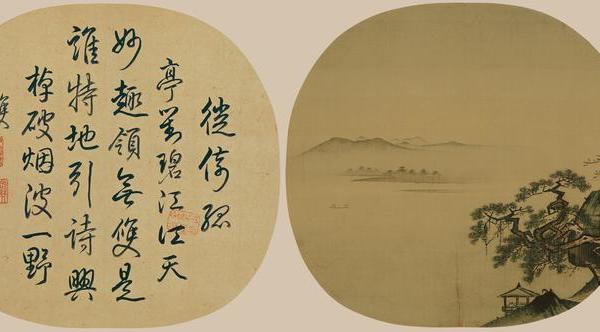 徙倚孤
亭對碧江江天
妙趣領無雙是
誰特地引詩興
棹破烟波一野